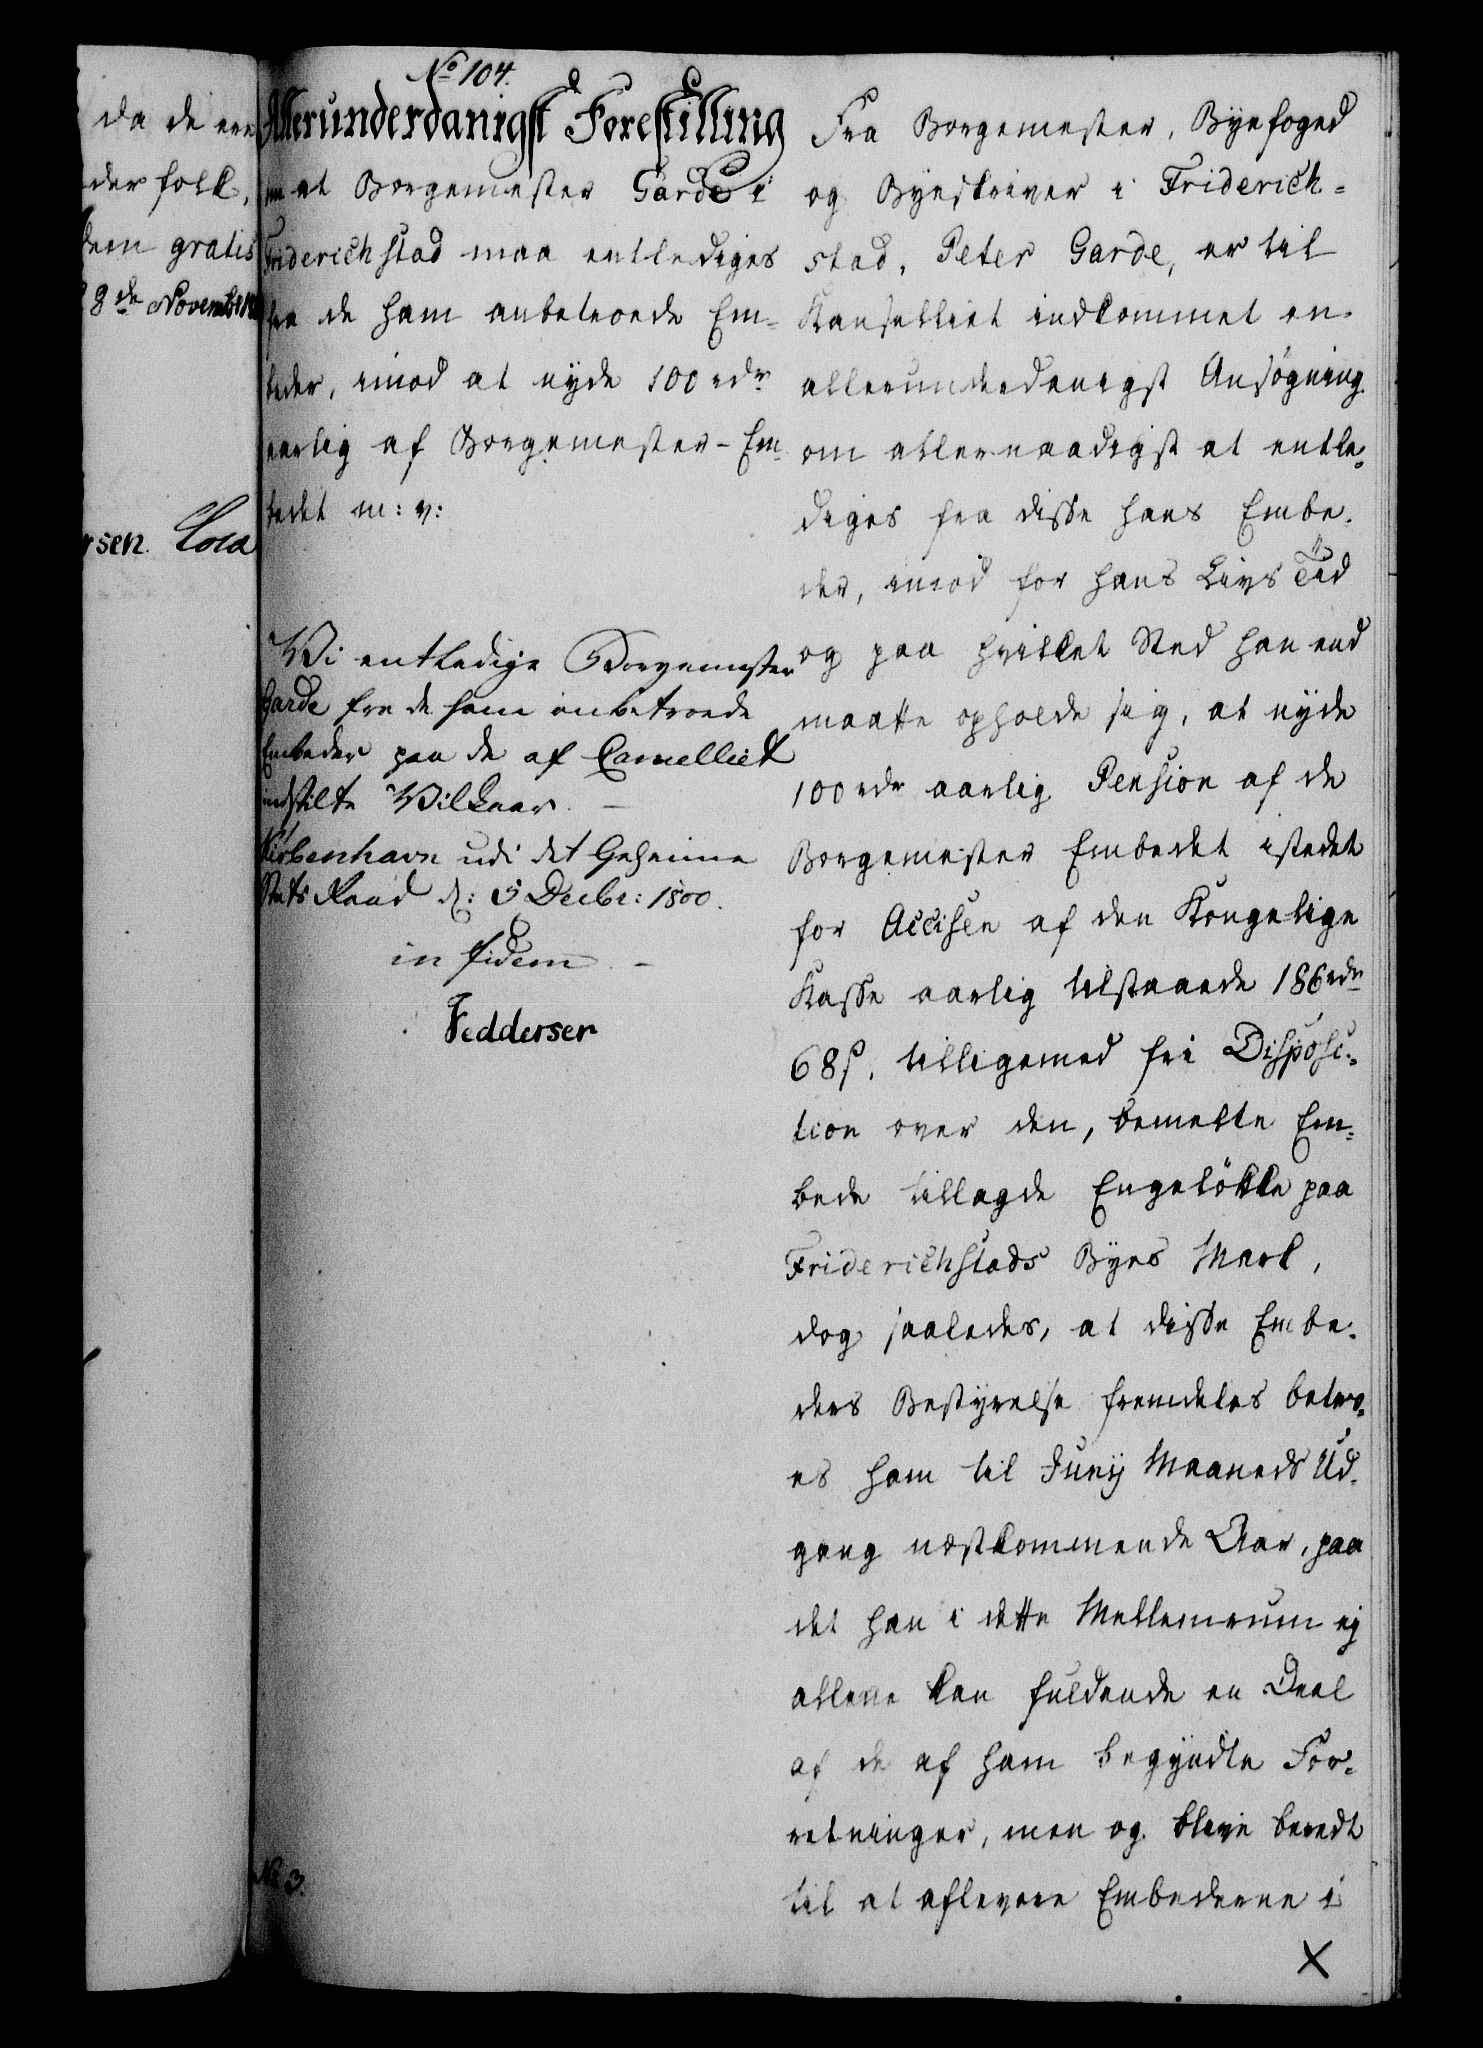 da de ere
der folk,
dem gratis
8de November
rsen. Lora
No 104.
Allerunderdanigst Forestilling
om at Borgemester Garde i
Friderichstad maa entlediges
fra de ham anbetroede Em-
beder, imod at nyde 100 rdr
aarlig af Borgemester-Em-
bedet m: v:
Vi entledige Borgemester
Garde fra de ham anbetroede
Embeder paa de af Cancelliet
indstilte Vilkaar. –
Kiøbenhavn udi det Geheime
Stats Raad d: 5 Decbr: 1800.
in fidem. –
Feddersen
No 3.
Fra Borgemester, Byefoged
og Byeskriver i Friderich-
stad, Peter Garde, er til
Kanselliet indkommet en
allerunderdanigst Ansøgning
om allernaadigst at entle-
diges fra disse hans Embe-
der, imod for hans Livs Tid
og paa hvilket Sted han end
maatte opholde sig, at nyde
100 rdr aarlig Pension af de
Borgemester Embedet istedet
for Accisen af den Kongelige
Kasse aarlig tilstaaede 186 rdr
68 s. tilligemed fri Disposi-
tion over den, bemelte Em-
bede tillagde Engeløkke paa
Friderichstads Byes Mark,
dog saaledes, at disse Embe-
ders Bestyrelse fremdeles betro-
es ham til Junij Maaneds Ud-
gang næstkommende Aar, paa
det han i dette Mellemrum ej
allene kan fuldende en Deel
af de af ham begyndte For-
retninger, men og blive beredt
til at aflevere Embederne i
X